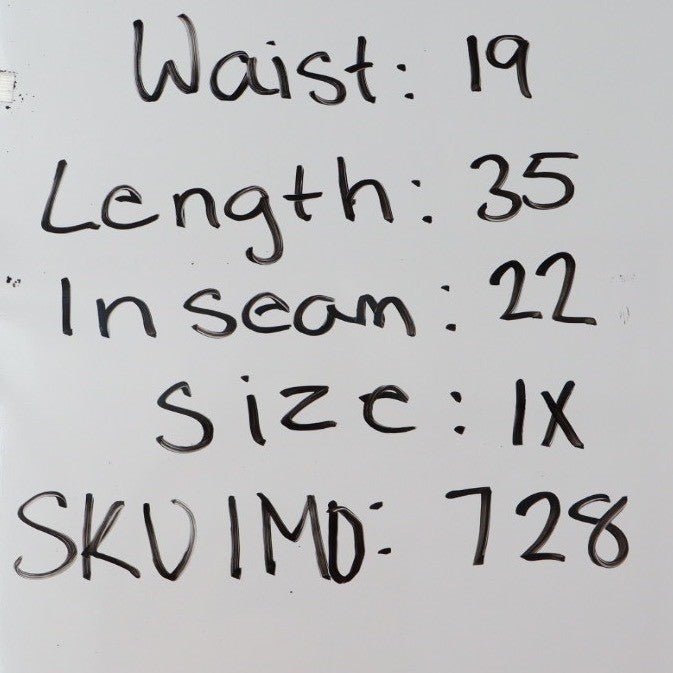 Waist: 19
Length: 35
Inseam: 22
Size: 1X
SKU IMD: 728